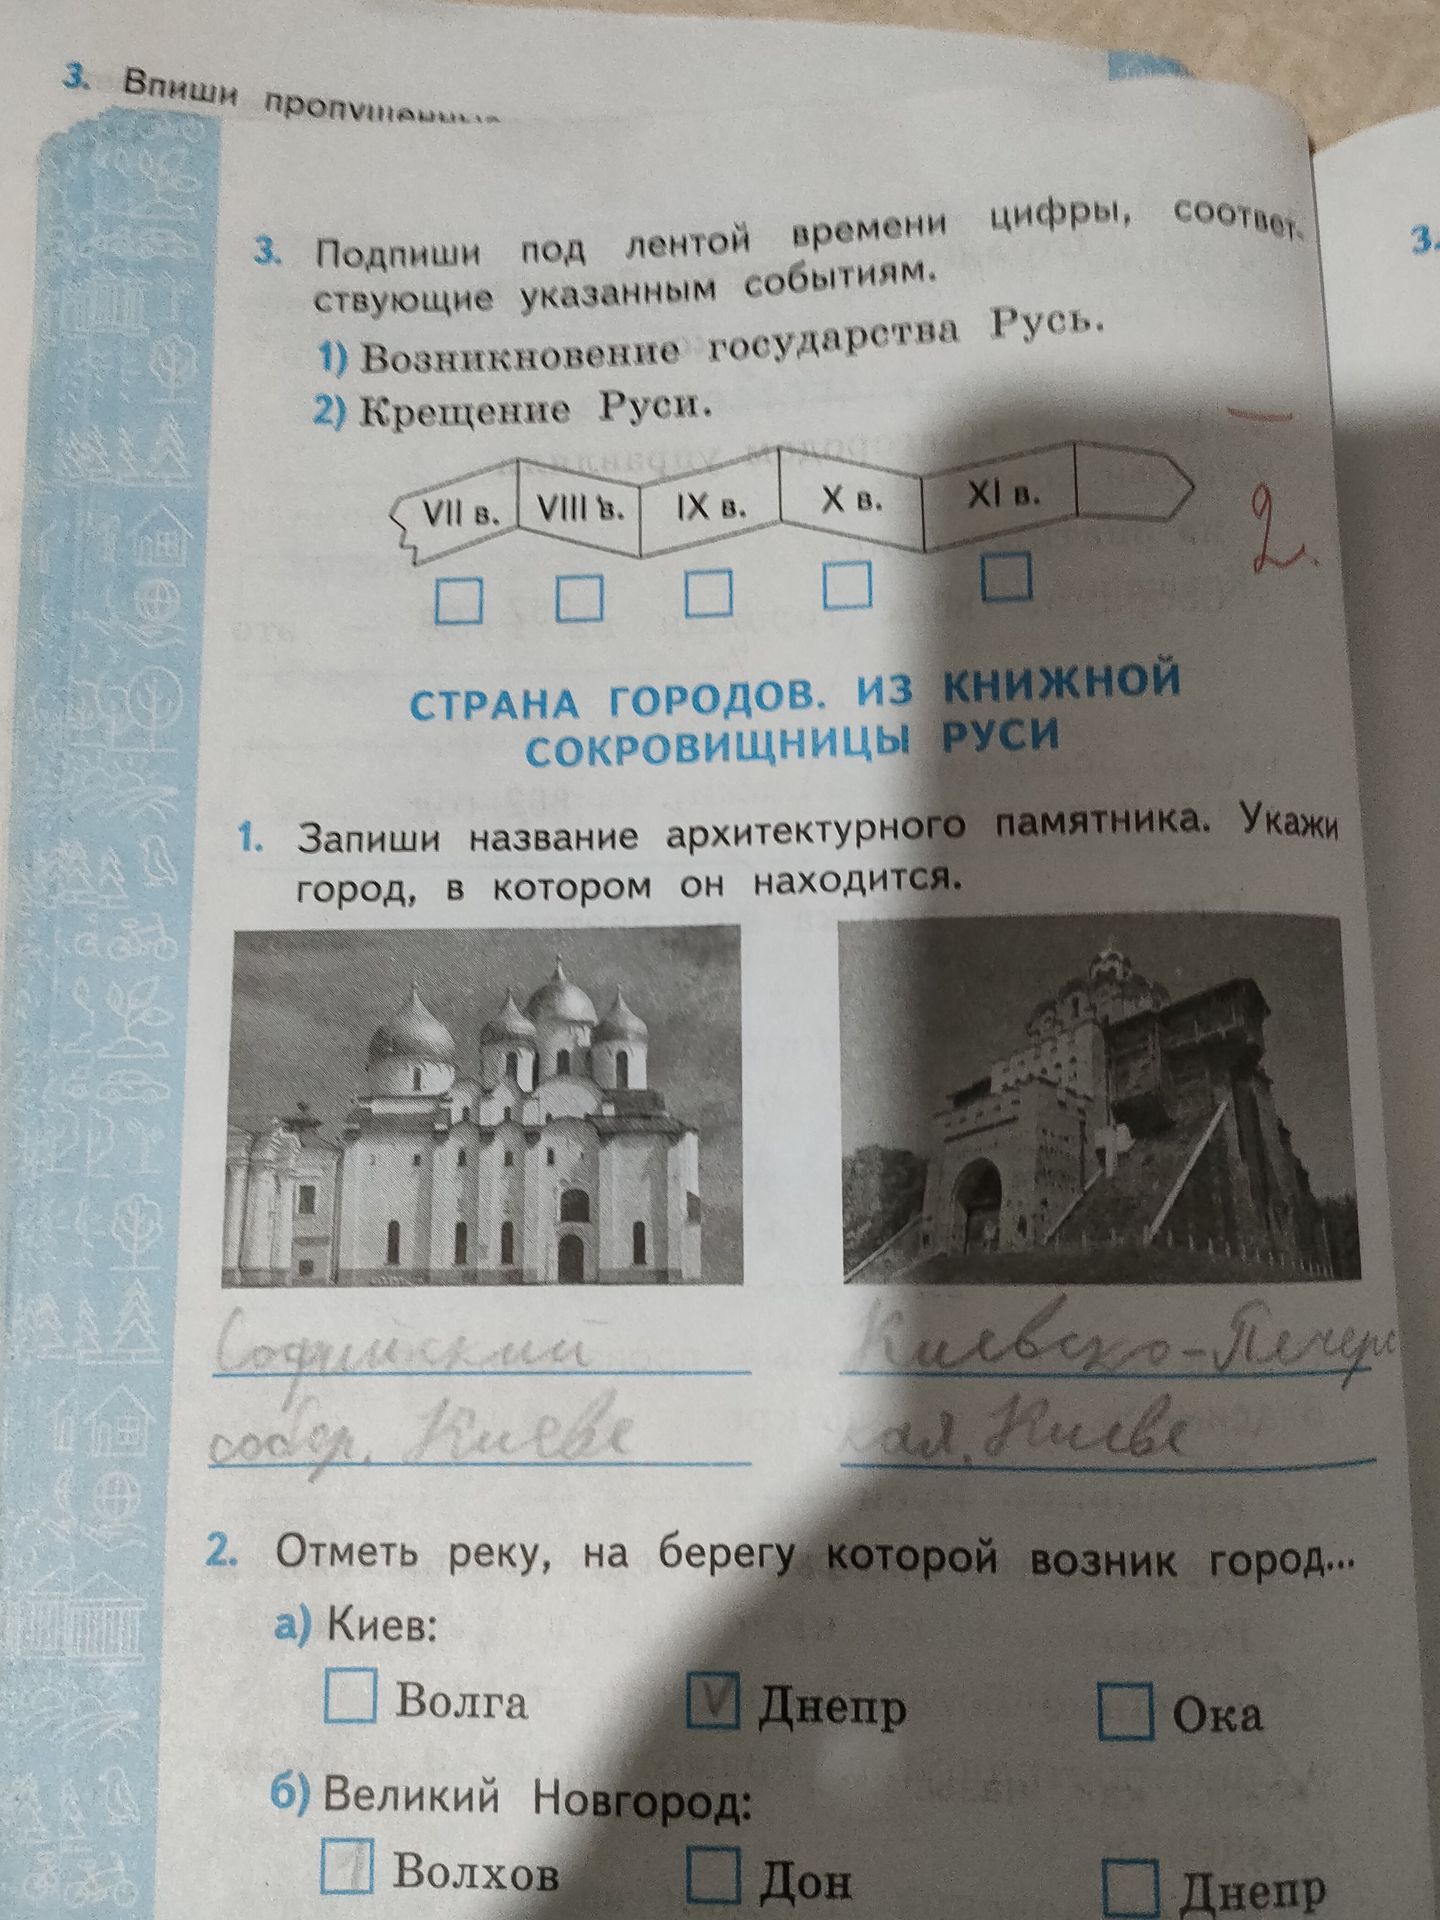 3. Впиши
3. Подпиши под лентой времени цифры, соответ-
ствующие указанным событиям.
1) Возникновение государства Русь.
2) Крещение Руси.
VII в. VIII в. IX в. X в. XI в.
2.
СТРАНА ГОРОДОВ. ИЗ КНИЖНОЙ
СОКРОВИЩНИЦЫ РУСИ
1. Запиши название архитектурного памятника. Укажи
город, в котором он находится.
Софийский
собор. Киеве
Киевско-Печерс
кая. Киеве
2. Отметь реку, на берегу которой возник город...
а) Киев:
Волга V Днепр Ока
б) Великий Новгород:
Волхов Дон Днепр
3.